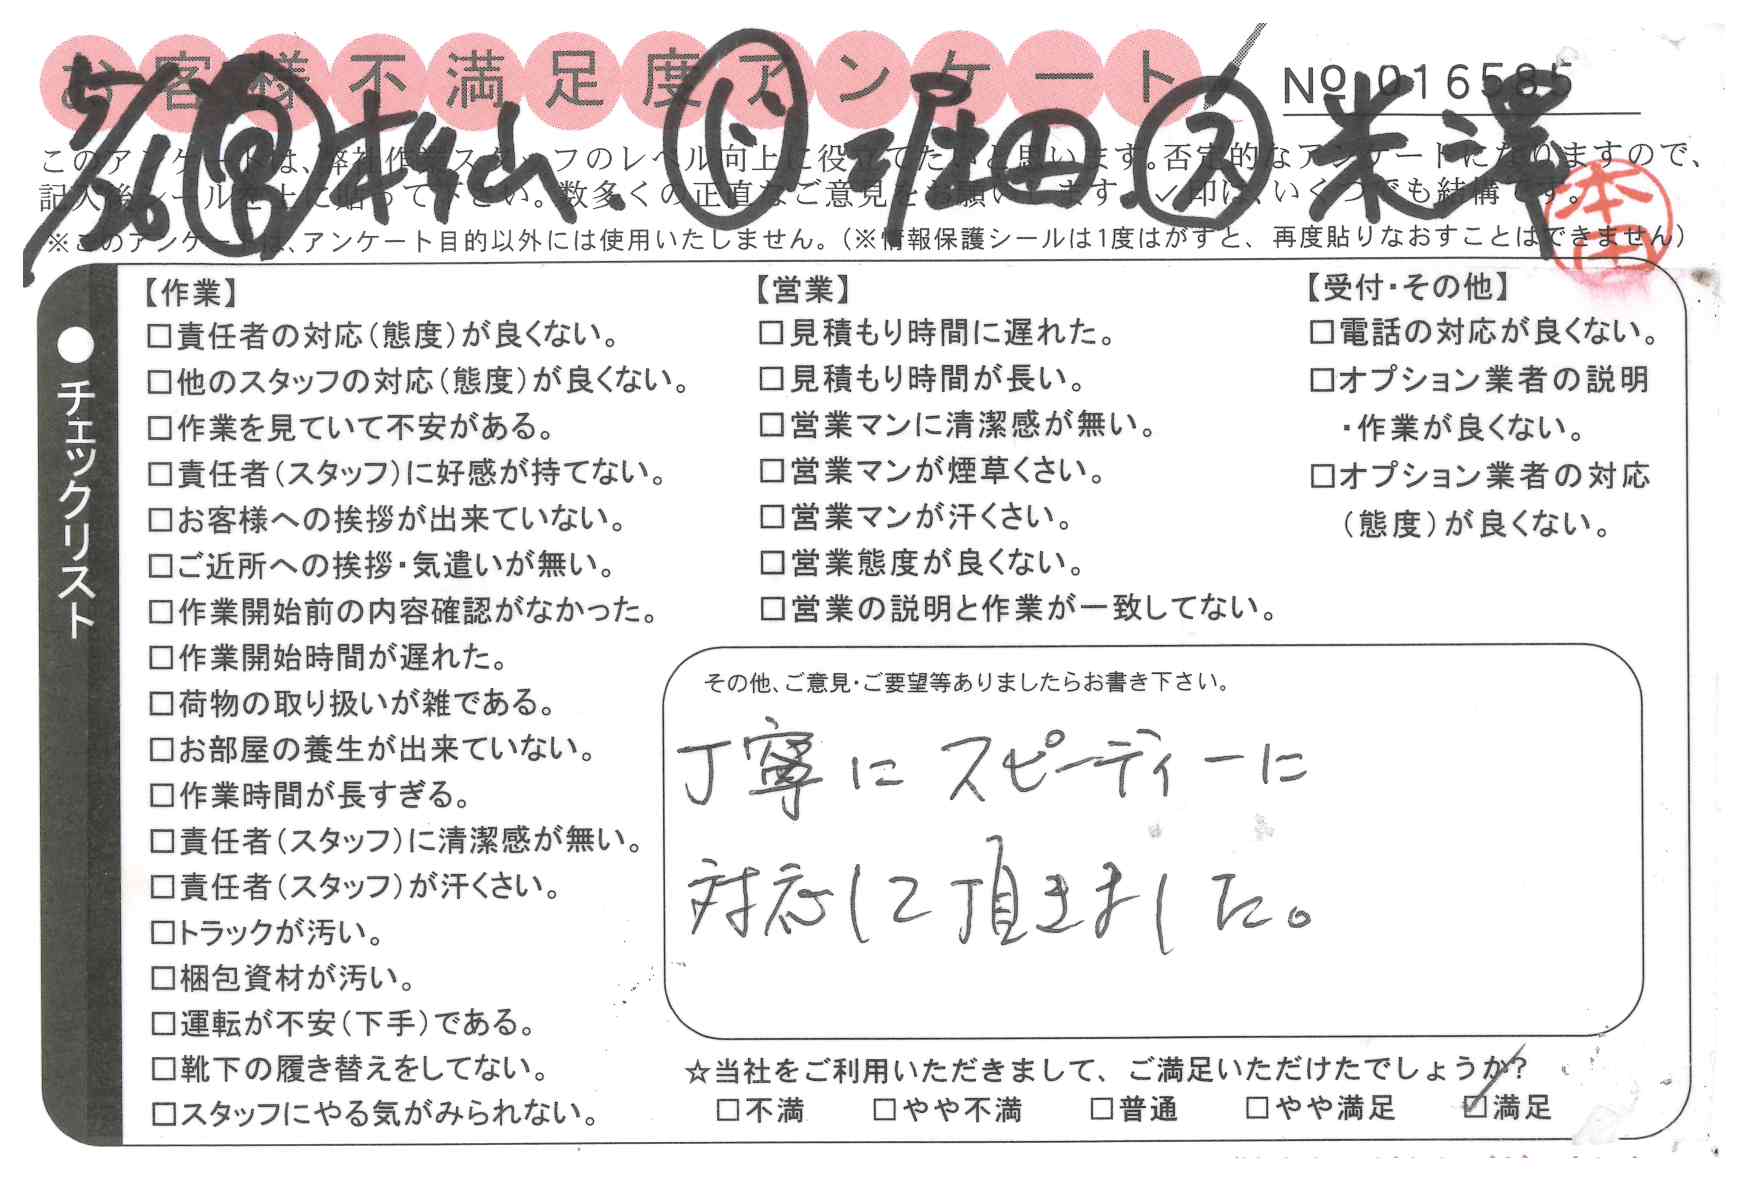 お客様不満足度アンケート
No 016585
5/26 営 村山 ド 堀田 ス 米澤
このアンケートは、弊社作業スタッフのレベル向上に役立てたいと思います。否定的なアンケートになりますので、
記入後シールを上に貼って下さい。数多くの正直なご意見をお願いします。✓印は、いくつでも結構です。
※このアンケートは、アンケート目的以外には使用いたしません。(※情報保護シールは1度はがすと、再度貼りなおすことはできません)
本田
●チェックリスト
【作業】
□責任者の対応(態度)が良くない。
□他のスタッフの対応(態度)が良くない。
□作業を見ていて不安がある。
□責任者(スタッフ)に好感が持てない。
□お客様への挨拶が出来ていない。
□ご近所への挨拶・気遣いが無い。
□作業開始前の内容確認がなかった。
□作業開始時間が遅れた。
□荷物の取り扱いが雑である。
□お部屋の養生が出来ていない。
□作業時間が長すぎる。
□責任者(スタッフ)に清潔感が無い。
□責任者(スタッフ)が汗くさい。
□トラックが汚い。
□梱包資材が汚い。
□運転が不安(下手)である。
□靴下の履き替えをしてない。
□スタッフにやる気がみられない。
【営業】
□見積もり時間に遅れた。
□見積もり時間が長い。
□営業マンに清潔感が無い。
□営業マンが煙草くさい。
□営業マンが汗くさい。
□営業態度が良くない。
□営業の説明と作業が一致してない。
【受付・その他】
□電話の対応が良くない。
□オプション業者の説明
・作業が良くない。
□オプション業者の対応
(態度)が良くない。
その他、ご意見・ご要望等ありましたらお書き下さい。
丁寧にスピーディーに
対応して頂きました。
☆当社をご利用いただきまして、ご満足いただけたでしょうか?
□不満 □やや不満 □普通 □やや満足 ☑満足